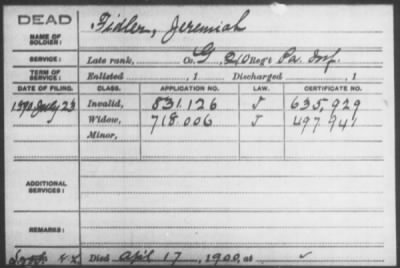 DEAD
NAME OF SOLDIER:
Fidler, Jeremiah
SERVICE: Late rank, Co. G, 210 Reg't Pa. Inf.
TERM OF SERVICE: Enlisted , 1 Discharged , 1
DATE OF FILING. CLASS. APPLICATION NO. LAW. CERTIFICATE NO.
1890 July 23 Invalid, 831.126 J 635,929
Widow, 718.006 J 497.941
Minor,
ADDITIONAL SERVICES:
REMARKS:
Died April 17, 1900, at